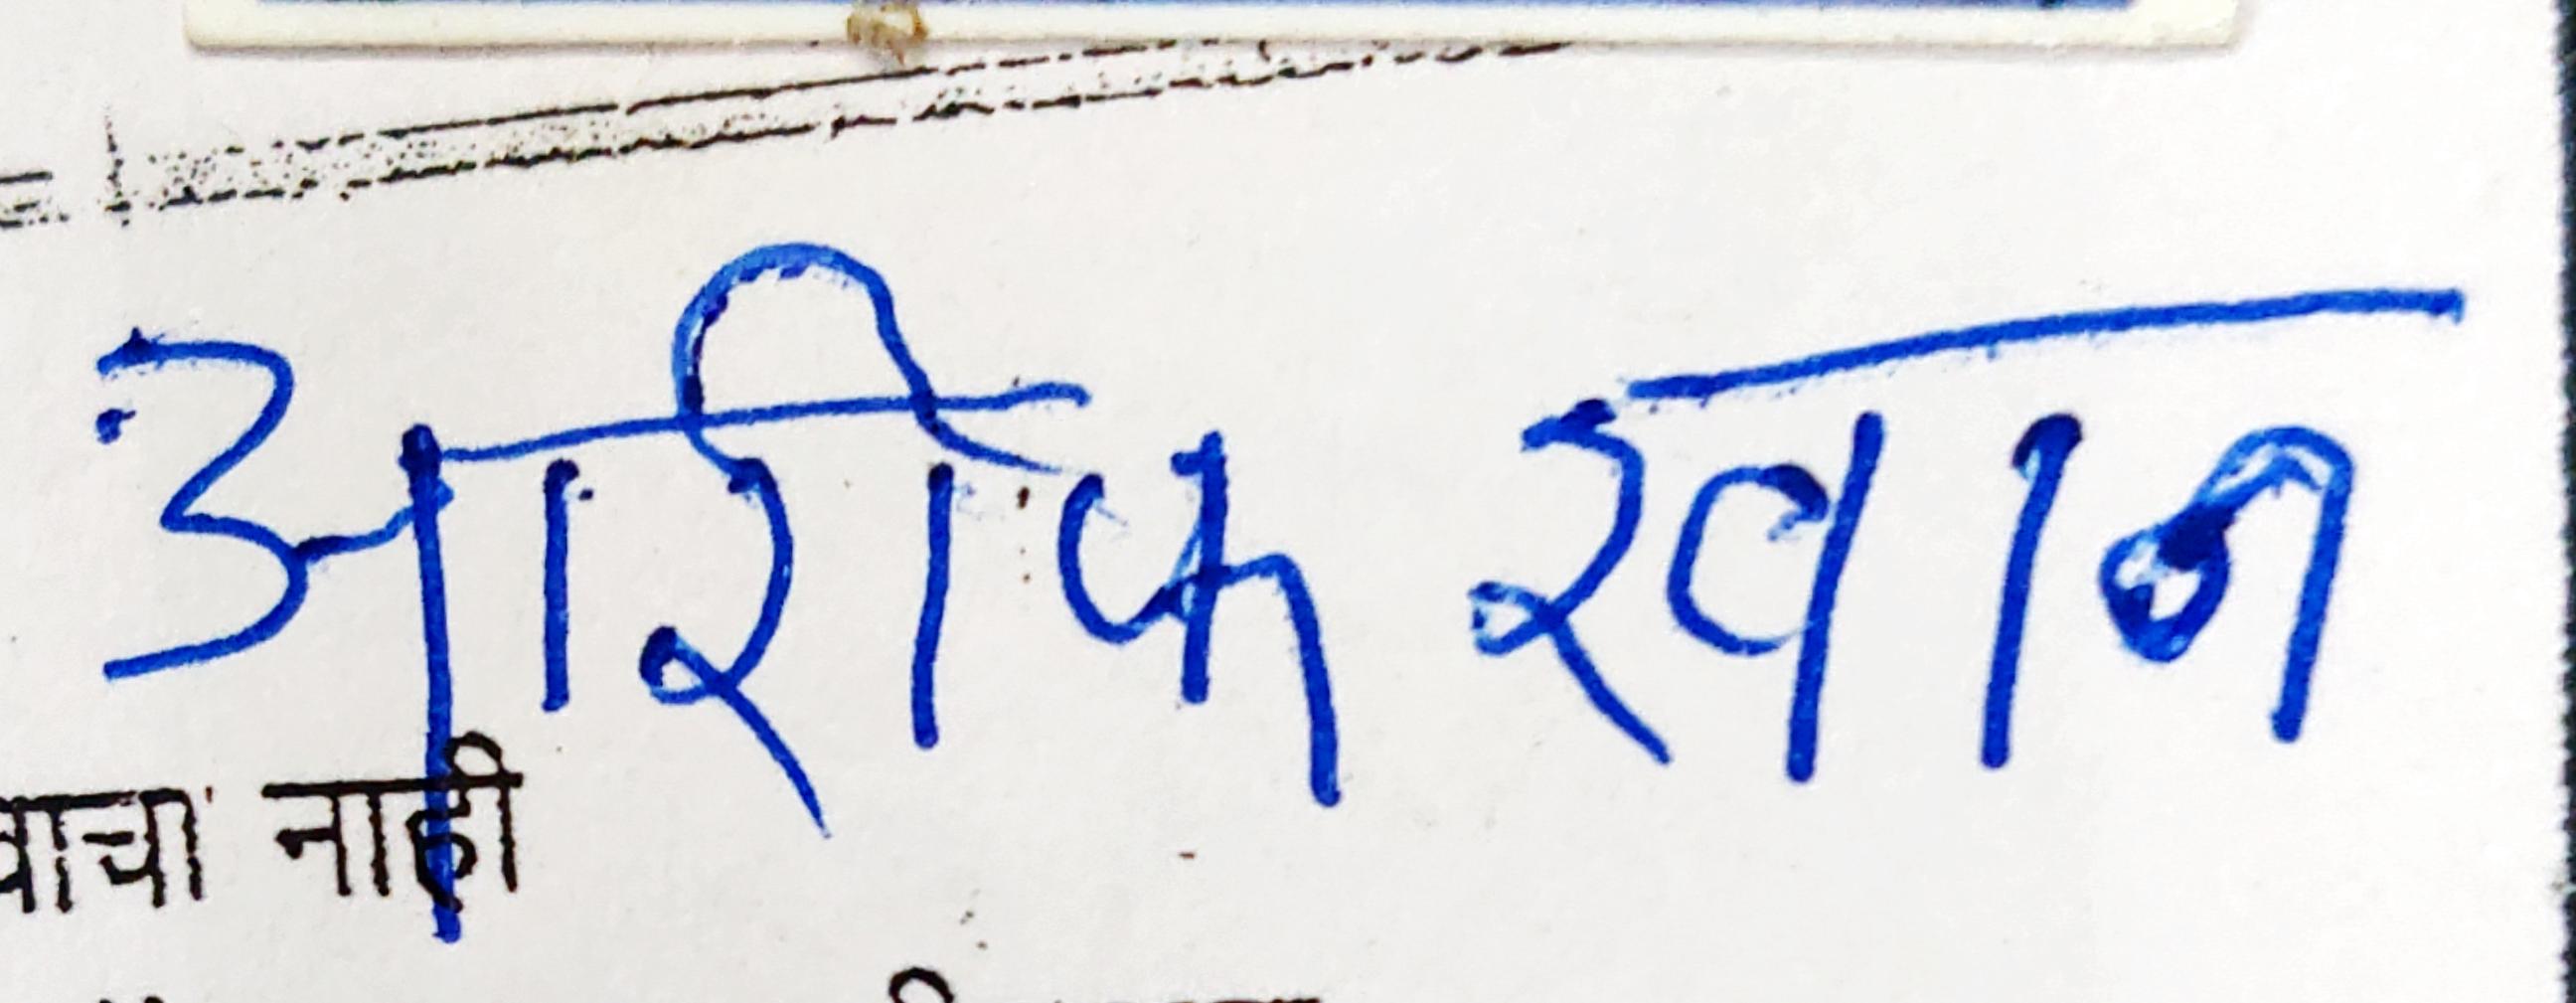 आरीफ खान
वाचा नाही